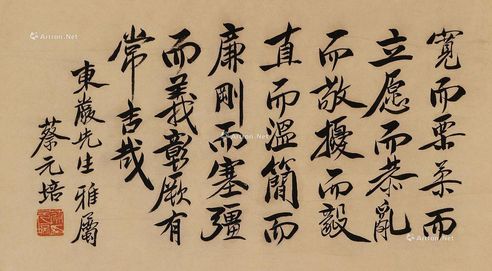 寬而栗柔而
立愿而恭亂
而敬擾而毅
直而溫簡而
廉剛而塞彊
而義彰厥有
常吉哉
東巖先生雅屬
蔡元培
Artron.Net
Artron.Net
Artron.Net